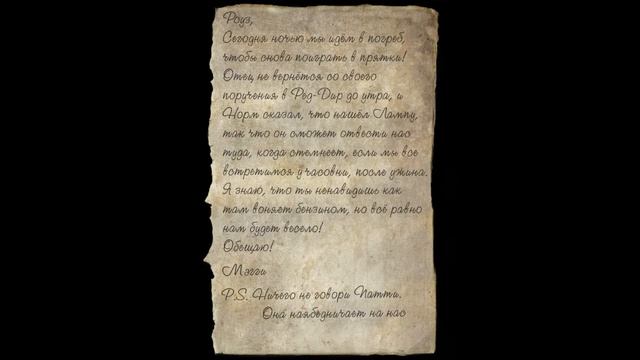 Роуз,
Сегодня ночью мы идём в погреб,
чтобы снова поиграть в прятки!
Отец не вернётся со своего
поручения в Ред-Дир до утра, и
Норм сказал, что нашёл Лампу,
так что он сможет отвести нас
туда, когда стемнеет, если мы все
встретимся у часовни, после ужина.
Я знаю, что ты ненавидишь как
там воняет бензином, но всё равно
нам будет весело!
Обещаю!
Мэгги
P.S. Ничего не говори Патти.
Она наябедничает на нас